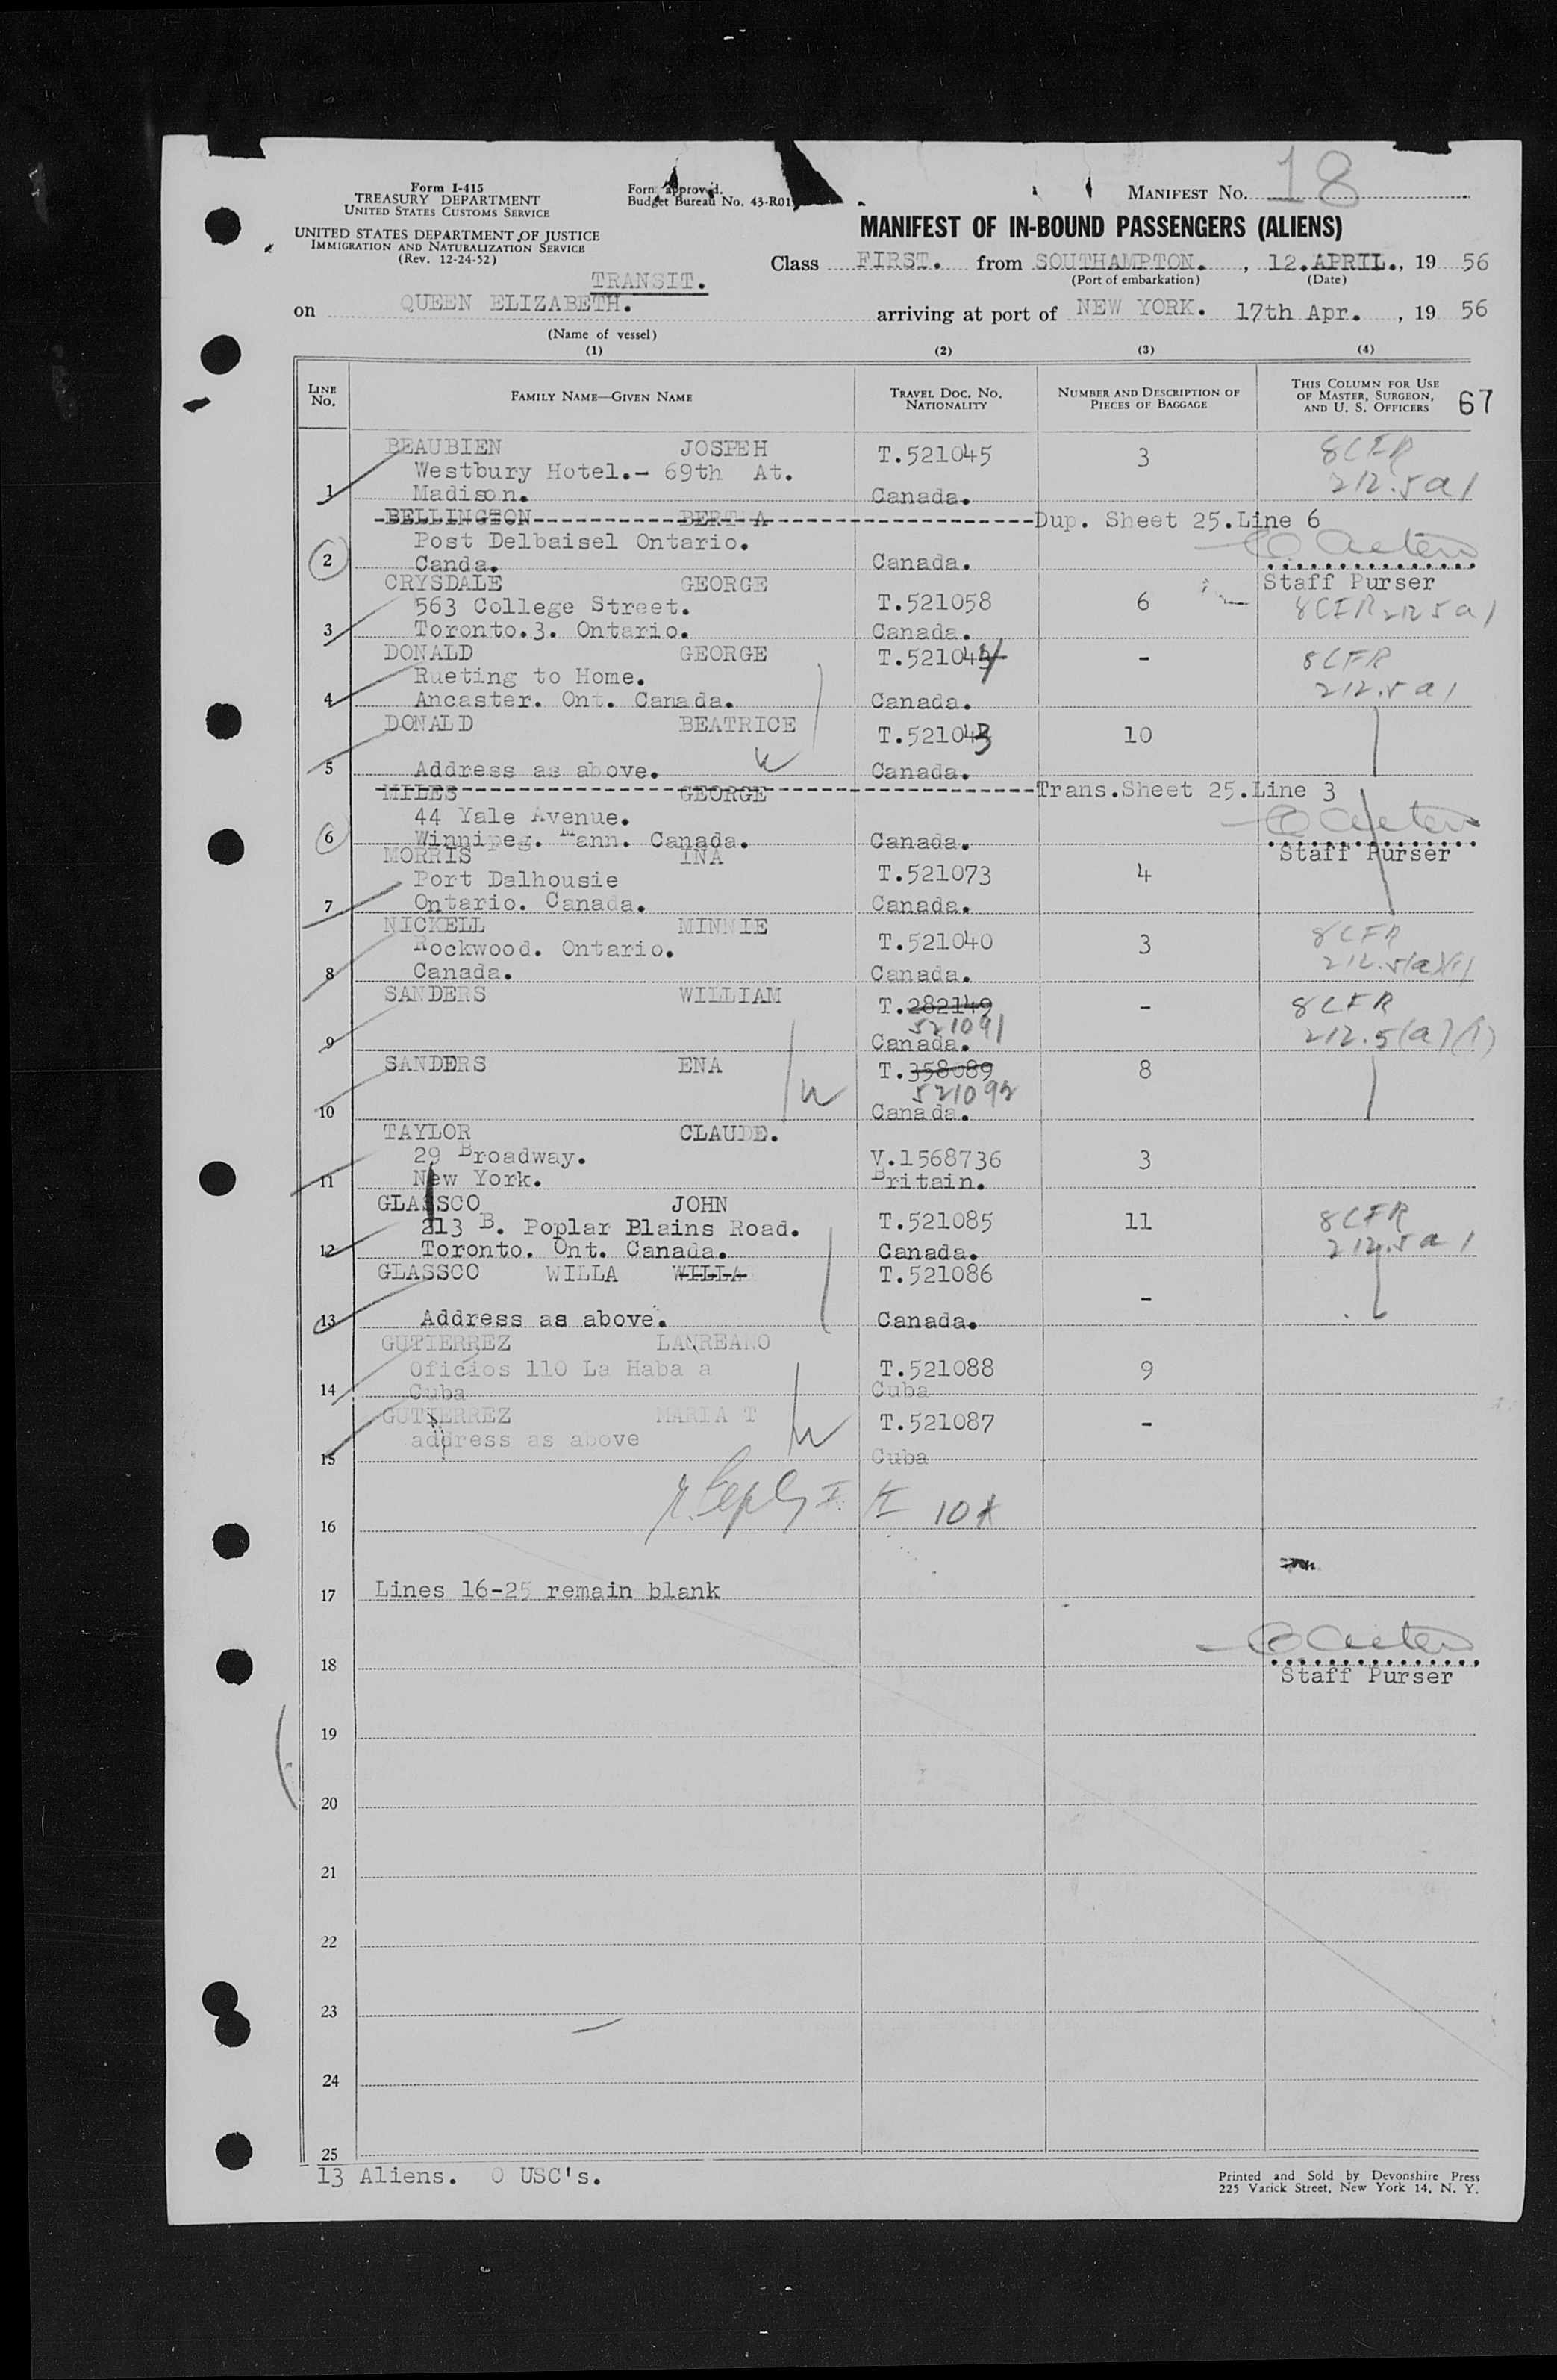 Form I-415
TREASURY DEPARTMENT
UNITED STATES CUSTOMS SERVICE
UNITED STATES DEPARTMENT OF JUSTICE
IMMIGRATION AND NATURALIZATION SERVICE
(Rev. 12-24-52)
Form approved.
Budget Bureau No. 43-R01
MANIFEST NO. 18
MANIFEST OF IN-BOUND PASSENGERS (ALIENS)
Class FIRST. from SOUTHAMPTON. , 12.APRIL., 19 56
(Port of embarkation) (Date)
TRANSIT.
on QUEEN ELIZABETH. arriving at port of NEW YORK. 17th Apr. , 19 56
(Name of vessel)
(1) (2) (3) (4)
LINE No. FAMILY NAME—GIVEN NAME TRAVEL DOC. NO. NATIONALITY NUMBER AND DESCRIPTION OF PIECES OF BAGGAGE THIS COLUMN FOR USE OF MASTER, SURGEON, AND U. S. OFFICERS 67
BEAUBIEN JOSPEH T.521045 3 8CFR
Westbury Hotel.- 69th At. 212.5a1
1 Madison. Canada.
BELLINGTON BERT A Dup. Sheet 25.Line 6
Post Delbaisel Ontario.
2 Canda. Canada.
Staff Purser
CRYSDALE GEORGE
563 College Street. T.521058 6 8CFR 212 5a1
3 Toronto.3. Ontario. Canada.
DONALD GEORGE T.521044 - 8CFR
Rueting to Home. 212.5a1
4 Ancaster. Ont. Canada. Canada.
DONALD BEATRICE T.521043 10
5 Address as above. Canada.
MILES GEORGE Trans.Sheet 25.Line 3
44 Yale Avenue.
6 Winnipeg. Mann. Canada. Canada.
Staff Purser
MORRIS INA
Port Dalhousie T.521073 4
7 Ontario. Canada. Canada.
NICKELL MINNIE
Rockwood. Ontario. T.521040 3 8CFR
8 Canada. Canada. 212.5(a)(1)
SANDERS WILLIAM T.282149 - 8CFR
521091 212.5(a)(1)
9 Canada.
SANDERS ENA T.358089 8
521092
10 Canada.
TAYLOR CLAUDE.
29 Broadway. V.1568736 3
11 New York. Britain.
GLASSCO JOHN T.521085 11 8CFR
213 B. Poplar Blains Road. 212.5a1
12 Toronto. Ont. Canada. Canada.
GLASSCO WILLA WILLA T.521086
-
13 Address as above. Canada.
GUTIERREZ LAUREANO
Oficios 110 La Haba a T.521088 9
14 Cuba Cuba
GUTIERREZ MARIA T T.521087 -
address as above
15 Cuba
16 10
17 Lines 16-25 remain blank
18
Staff Purser
19
20
21
22
23
24
25
13 Aliens. 0 USC's.
Printed and Sold by Devonshire Press
225 Varick Street, New York 14, N. Y.